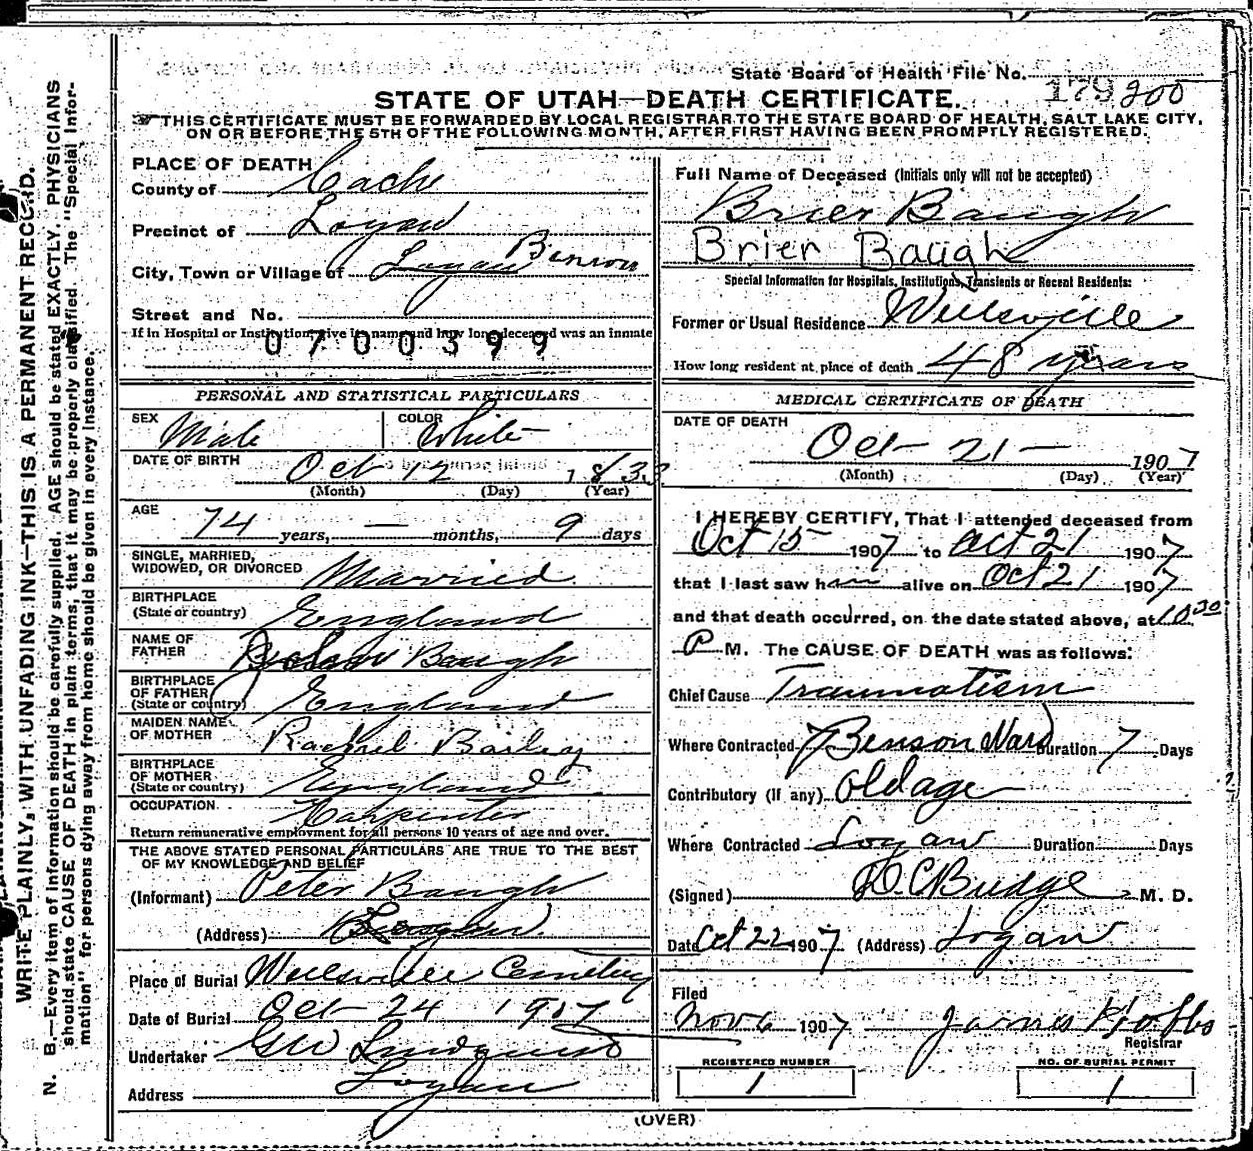 State Board of Health File No. 179 200
STATE OF UTAH—DEATH CERTIFICATE.
THIS CERTIFICATE MUST BE FORWARDED BY LOCAL REGISTRAR TO THE STATE BOARD OF HEALTH, SALT LAKE CITY,
ON OR BEFORE THE 5TH OF THE FOLLOWING MONTH, AFTER FIRST HAVING BEEN PROMPTLY REGISTERED.
WRITE PLAINLY, WITH UNFADING INK—THIS IS A PERMANENT RECORD.
N. B.—Every item of information should be carefully supplied. AGE should be stated EXACTLY. PHYSICIANS
should state CAUSE OF DEATH in plain terms, that it may be properly classified. The "Special Infor-
mation" for persons dying away from home should be given in every instance.
PLACE OF DEATH
County of Cache
Precinct of Logan
City, Town or Village of Logan Benson
Street and No.
If in Hospital or Institution, give its name and how long deceased was an inmate
0700399
PERSONAL AND STATISTICAL PARTICULARS
SEX Male COLOR White
DATE OF BIRTH Oct 12 1833
(Month) (Day) (Year)
AGE 74 years, — months, 9 days
SINGLE, MARRIED,
WIDOWED, OR DIVORCED Married
BIRTHPLACE
(State or country) England
NAME OF
FATHER Baugh
BIRTHPLACE
OF FATHER
(State or country) England
MAIDEN NAME
OF MOTHER Rachel Bailey
BIRTHPLACE
OF MOTHER
(State or country) England
OCCUPATION Carpenter
Return remunerative employment for all persons 10 years of age and over.
THE ABOVE STATED PERSONAL PARTICULARS ARE TRUE TO THE BEST
OF MY KNOWLEDGE AND BELIEF
(Informant) Peter Baugh
(Address) Logan
Place of Burial Wellsville Cemetery
Date of Burial Oct 24 1907
Undertaker GW Lindquist
Address Logan
Full Name of Deceased (Initials only will not be accepted)
Brier Baugh
Brier Baugh
Special Information for Hospitals, Institutions, Transients or Recent Residents:
Former or Usual Residence Wellsville
How long resident at place of death 48 years
MEDICAL CERTIFICATE OF DEATH
DATE OF DEATH
Oct 21 — 1907
(Month) (Day) (Year)
I HEREBY CERTIFY, That I attended deceased from
Oct 15 1907 to Oct 21 1907
that I last saw him alive on Oct 21 1907
and that death occurred, on the date stated above, at 10.30
P M. The CAUSE OF DEATH was as follows:
Chief Cause Traumatism
Where Contracted Benson Ward Duration 7 Days
Contributory (If any) Old age
Where Contracted Logan Duration Days
(Signed) D.C. Budge M. D.
Date Oct 22 1907 (Address) Logan
Filed
Nov 6 1907 James Hobbs
Registrar
REGISTERED NUMBER
1
NO. OF BURIAL PERMIT
1
(OVER)